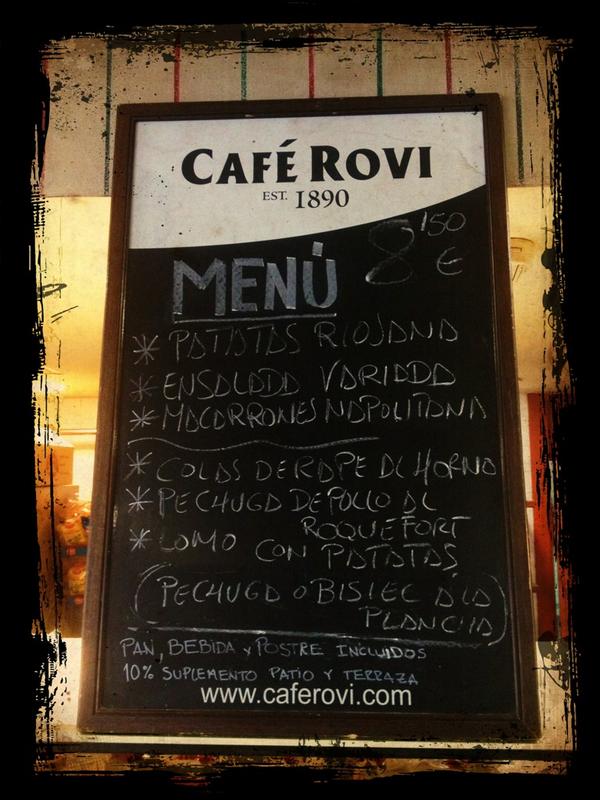 CAFÉ ROVI
EST. 1890
8'50 €
MENÚ
* PATATAS RIOJANA
* ENSALADA VARIADA
* MACARRONES NAPOLITANA
* COLAS DE RAPE AL HORNO
* PECHUGA DE POLLO AL
ROQUEFORT
* LOMO CON PATATAS
(PECHUGA O BISTEC A LA
PLANCHA)
PAN, BEBIDA Y POSTRE INCLUIDOS
10% SUPLEMENTO PATIO Y TERRAZA
www.caferovi.com